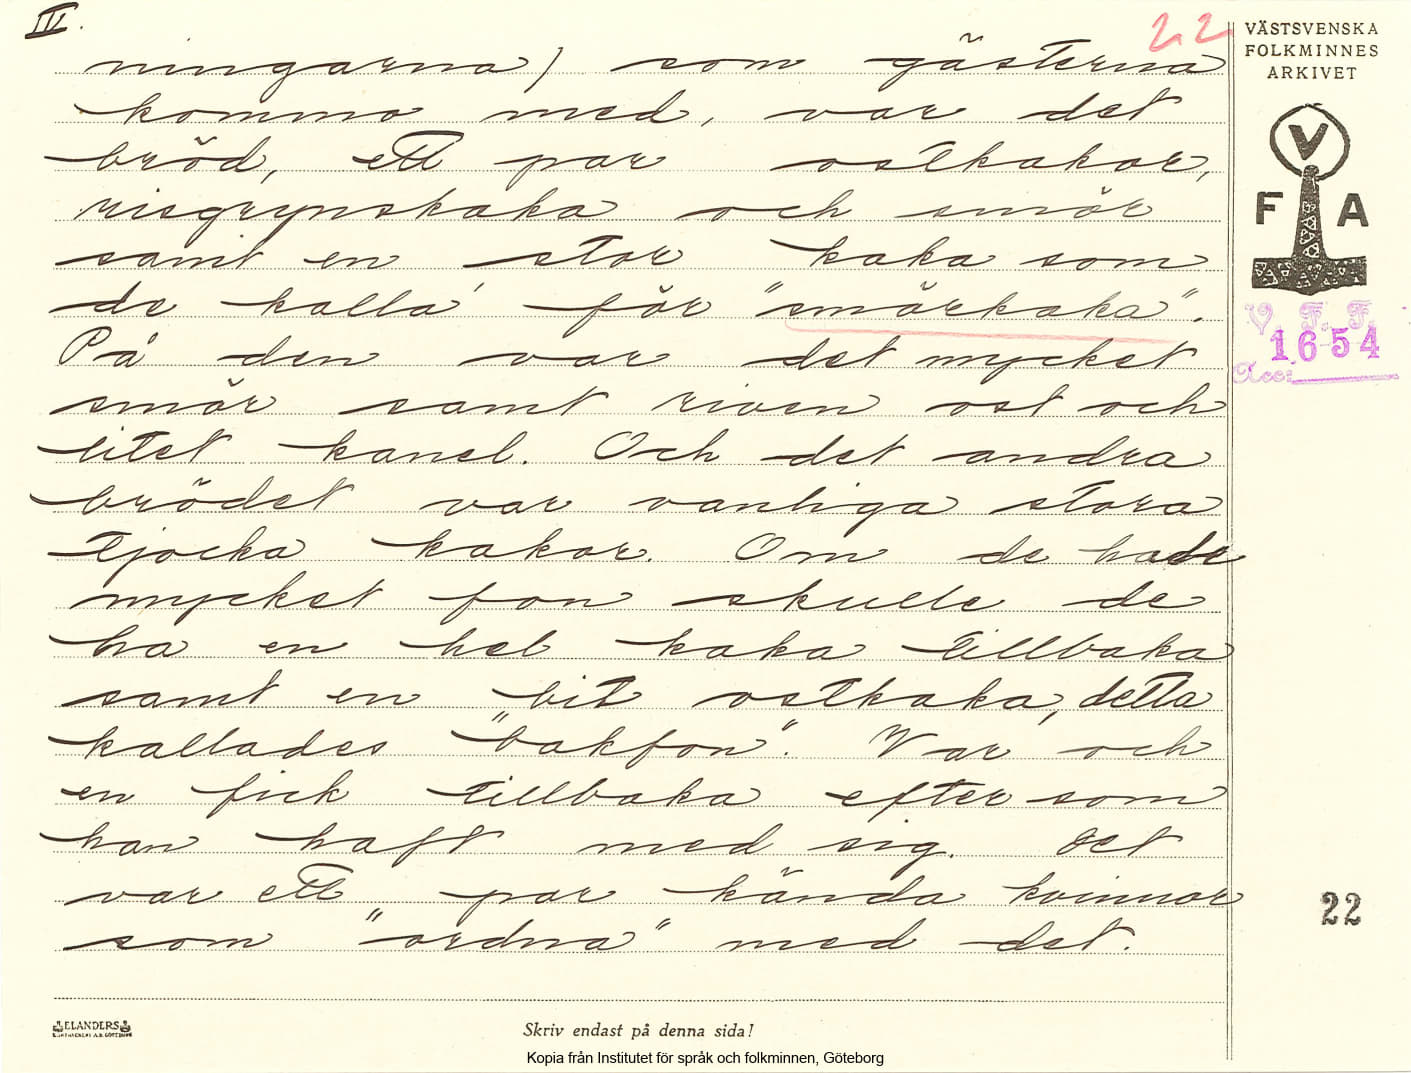 III.
22
ningarna) som gästerna
kommo med, var det
bröd, ett par ostkakor,
risgrynskaka och smör
samt en stor kaka som
de kalla' för "smörkaka".
På den var det mycket
smör samt riven ost och
litet kanel. Och det andra
brödet var vanliga stora
tjocka kakor. Om de hade
mycket fon skulle de
ha en hel kaka tillbaka
samt en bit ostkaka, detta
kallades "bakfon". Var och
en fick tillbaka efter som
han haft med sig. Det
var ett par kända kvinnor
som "ordna" med det.
VÄSTSVENSKA
FOLKMINNES
ARKIVET
V
F A
V. F. F.
1654
Acc:
22
ELANDERS
Skriv endast på denna sida!
Kopia från Institutet för språk och folkminnen, Göteborg